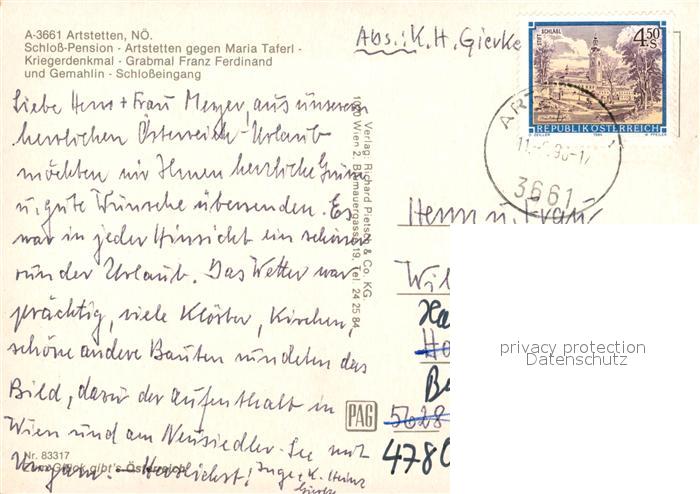 A-3661 Artstetten, NÖ.
Schloß-Pension · Artstetten gegen Maria Taferl ·
Kriegerdenkmal · Grabmal Franz Ferdinand
und Gemahlin · Schloßeingang
Abs.: K. H. Gierke
STIFT SCHLÄGL
4.50 S
REPUBLIK ÖSTERREICH
3661
Liebe Herr + Frau Meyer, aus unserem
herrlichen Österreich-Urlaub
möchten wir Ihnen herzliche Grüße
u. gute Wünsche übersenden. Es
war in jeder Hinsicht ein schöner
runder Urlaub. Das Wetter war
prächtig, viele Klöster, Kirchen,
schöne andere Bauten rundeten das
Bild, dazu der Aufenthalt in
Wien und am Neusiedler-See mit
Ungarn. – Herzlichst! Inge + K. Heinz
Gierke
Nr. 83317
Zum Glück gibt's Österreich!
Verlag: Richard Pietsch & Co. KG.
1090 Wien 2, Badmauergasse 19, Tel. 24 25 84
PAG
Herrn u. Frau
Wil
Ha
Ho
Be
5628
4780
privacy protection
Datenschutz